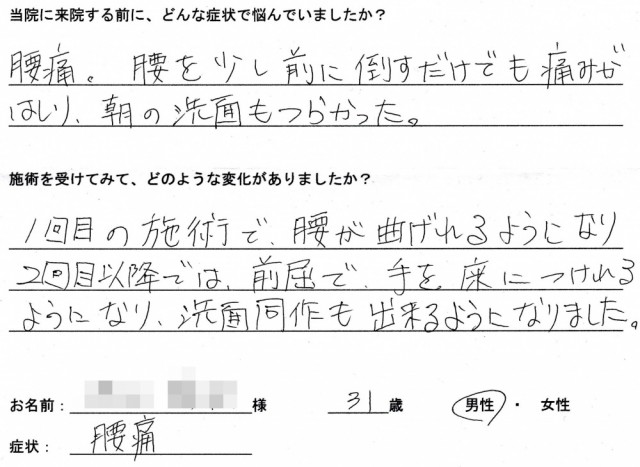 当院に来院する前に、どんな症状で悩んでいましたか？
腰痛。腰を少し前に倒すだけでも痛みが
はしり、朝の洗面もつらかった。
施術を受けてみて、どのような変化がありましたか？
1回目の施術で、腰が曲げれるようになり
2回目以降では、前屈で、手を床につけれる
ようになり、洗面同作も出来るようになりました。
お名前： 様 31歳 男性・女性
症状： 腰痛